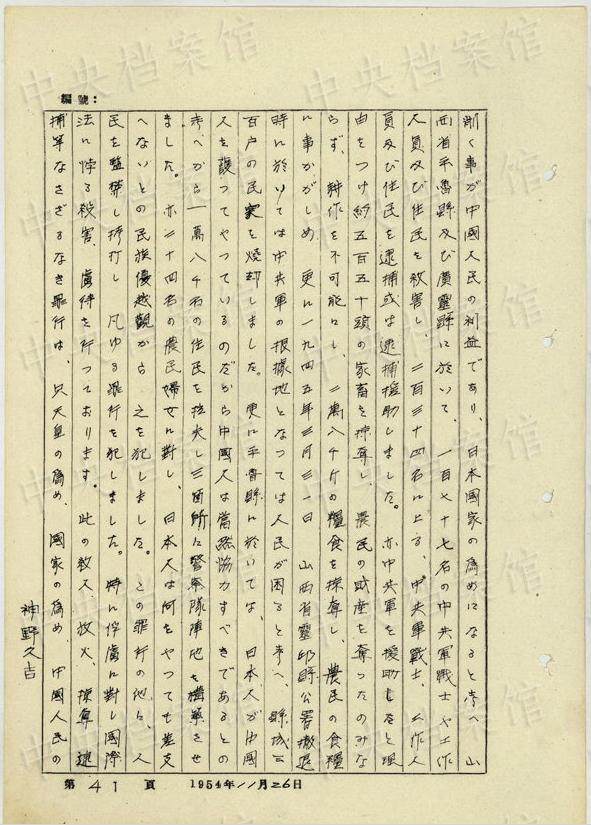 編號：
剿く事が中國人民の利益であり、日本國家の為めになると考へ 山
西省平魯縣及び廣靈縣に於いて、一百七十七名の中共軍戰士や工作
人員及び住民を殺害し、二百三十四名に上る、中央軍戰士、工作人
員及び住民を逮捕或は逮捕援助しました。亦中共軍を援助したと理
由をつけ約五百五十頭の家畜を掠奪し、農民の財産を奪つたのみな
らず、耕作を不可能にし、二萬八千斤の糧食を掠奪し、農民の食糧
に事かがしめ 更に一九四五年三月三一日 山西省靈邱縣公署撤退
時に於いては中共軍の根據地となつては人民が困ると考へ、縣城三
百户の民家を燒却しました。更に平魯縣に於いては、日本人が中國
人を護つてやつているのだから中國人は當然協力すべきであるとの
考へから一萬八千名の住民を 三箇所に警察隊陣地を構築させ
ました。亦二十四名の農民婦女に對し、日本人は何をやつても差支
へないとの民族優越觀から 之を犯しました。この罪行の他に、人
民を監禁し拷打し 凡ゆる罪行を犯しました。特に俘虜に對し國際
法に悖る殺害、虐待を行つております。此の殺人、放火、掠奪、逮
捕等なさざるなき罪行は、只天皇の為め、國家の為め、中國人民の
神野久吉
第 41 頁 1954年11月26日
中央档案馆